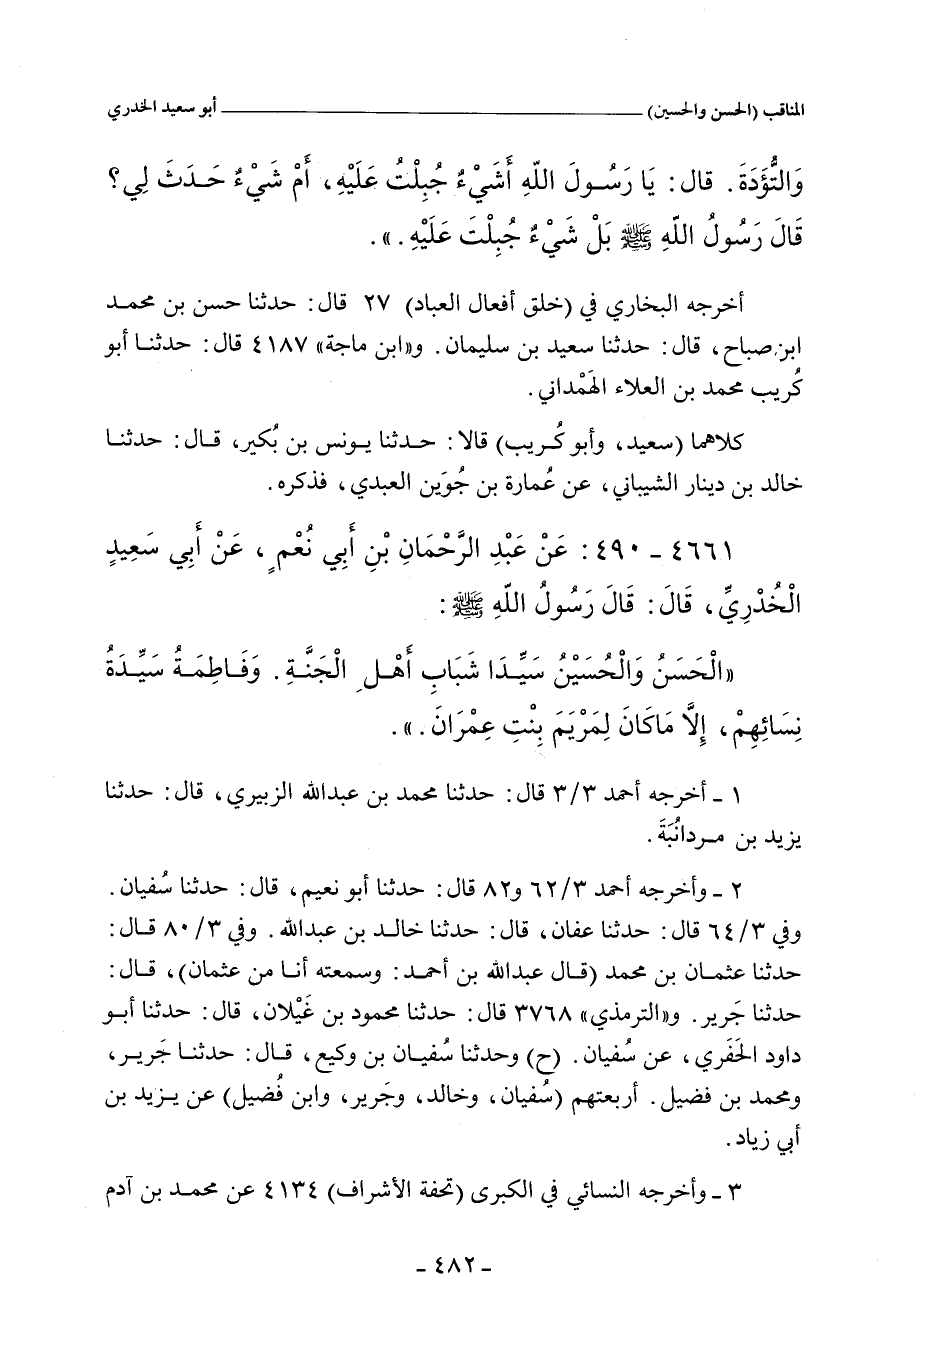 المناقب (الحسن والحسين) ــــــــــــــــــــ أبو سعيد الخدري
وَالتُّؤَدَةَ. قال: يَا رَسُولَ اللّهِ أَشَيْءٌ جُبِلْتُ عَلَيْهِ، أَمْ شَيْءٌ حَدَثَ لِي؟
قَالَ رَسُولُ اللّهِ ﷺ بَلْ شَيْءٌ جُبِلْتَ عَلَيْهِ.».
أخرجه البخاري في (خلق أفعال العباد) ٢٧ قال: حدثنا حسن بن محمد
ابن صباح، قال: حدثنا سعيد بن سليمان. و«ابن ماجة» ٤١٨٧ قال: حدثنا أبو
كُريب محمد بن العلاء الهَمْداني.
كلاهما (سعيد، وأبو كُريب) قالا: حدثنا يونس بن بُكير، قال: حدثنا
خالد بن دينار الشيباني، عن عُمارة بن جُوَين العبدي، فذكره.
٤٦٦١ - ٤٩٠: عَنْ عَبْدِ الرَّحْمَانِ بْنِ أَبِي نُعْمٍ، عَنْ أَبِي سَعِيدٍ
الْخُدْرِيِّ، قَالَ: قَالَ رَسُولُ اللّهِ ﷺ:
«الْحَسَنُ وَالْحُسَيْنُ سَيِّدَا شَبَابِ أَهْلِ الْجَنَّةِ. وَفَاطِمَةُ سَيِّدَةُ
نِسَائِهِمْ، إِلَّا مَاكَانَ لِمَرْيَمَ بِنْتِ عِمْرَانَ.».
١ - أخرجه أحمد ٣/٣ قال: حدثنا محمد بن عبدالله الزبيري، قال: حدثنا
يزيد بن مردانُبَةَ.
٢ - وأخرجه أحمد ٦٢/٣ و٨٢ قال: حدثنا أبو نعيم، قال: حدثنا سُفيان.
وفي ٦٤/٣ قال: حدثنا عفان، قال: حدثنا خالد بن عبدالله. وفي ٨٠/٣ قال:
حدثنا عثمان بن محمد (قال عبدالله بن أحمد: وسمعته أنا من عثمان)، قال:
حدثنا جَرير. و«الترمذي» ٣٧٦٨ قال: حدثنا محمود بن غَيْلان، قال: حدثنا أبو
داود الحَفَري، عن سُفيان. (ح) وحدثنا سُفيان بن وكيع، قال: حدثنا جَرير،
ومحمد بن فضيل. أربعتهم (سُفيان، وخالد، وجَرير، وابن فُضيل) عن يزيد بن
أبي زياد.
٣ - وأخرجه النسائي في الكبرى (تحفة الأشراف) ٤١٣٤ عن محمد بن آدم
- ٤٨٢ -